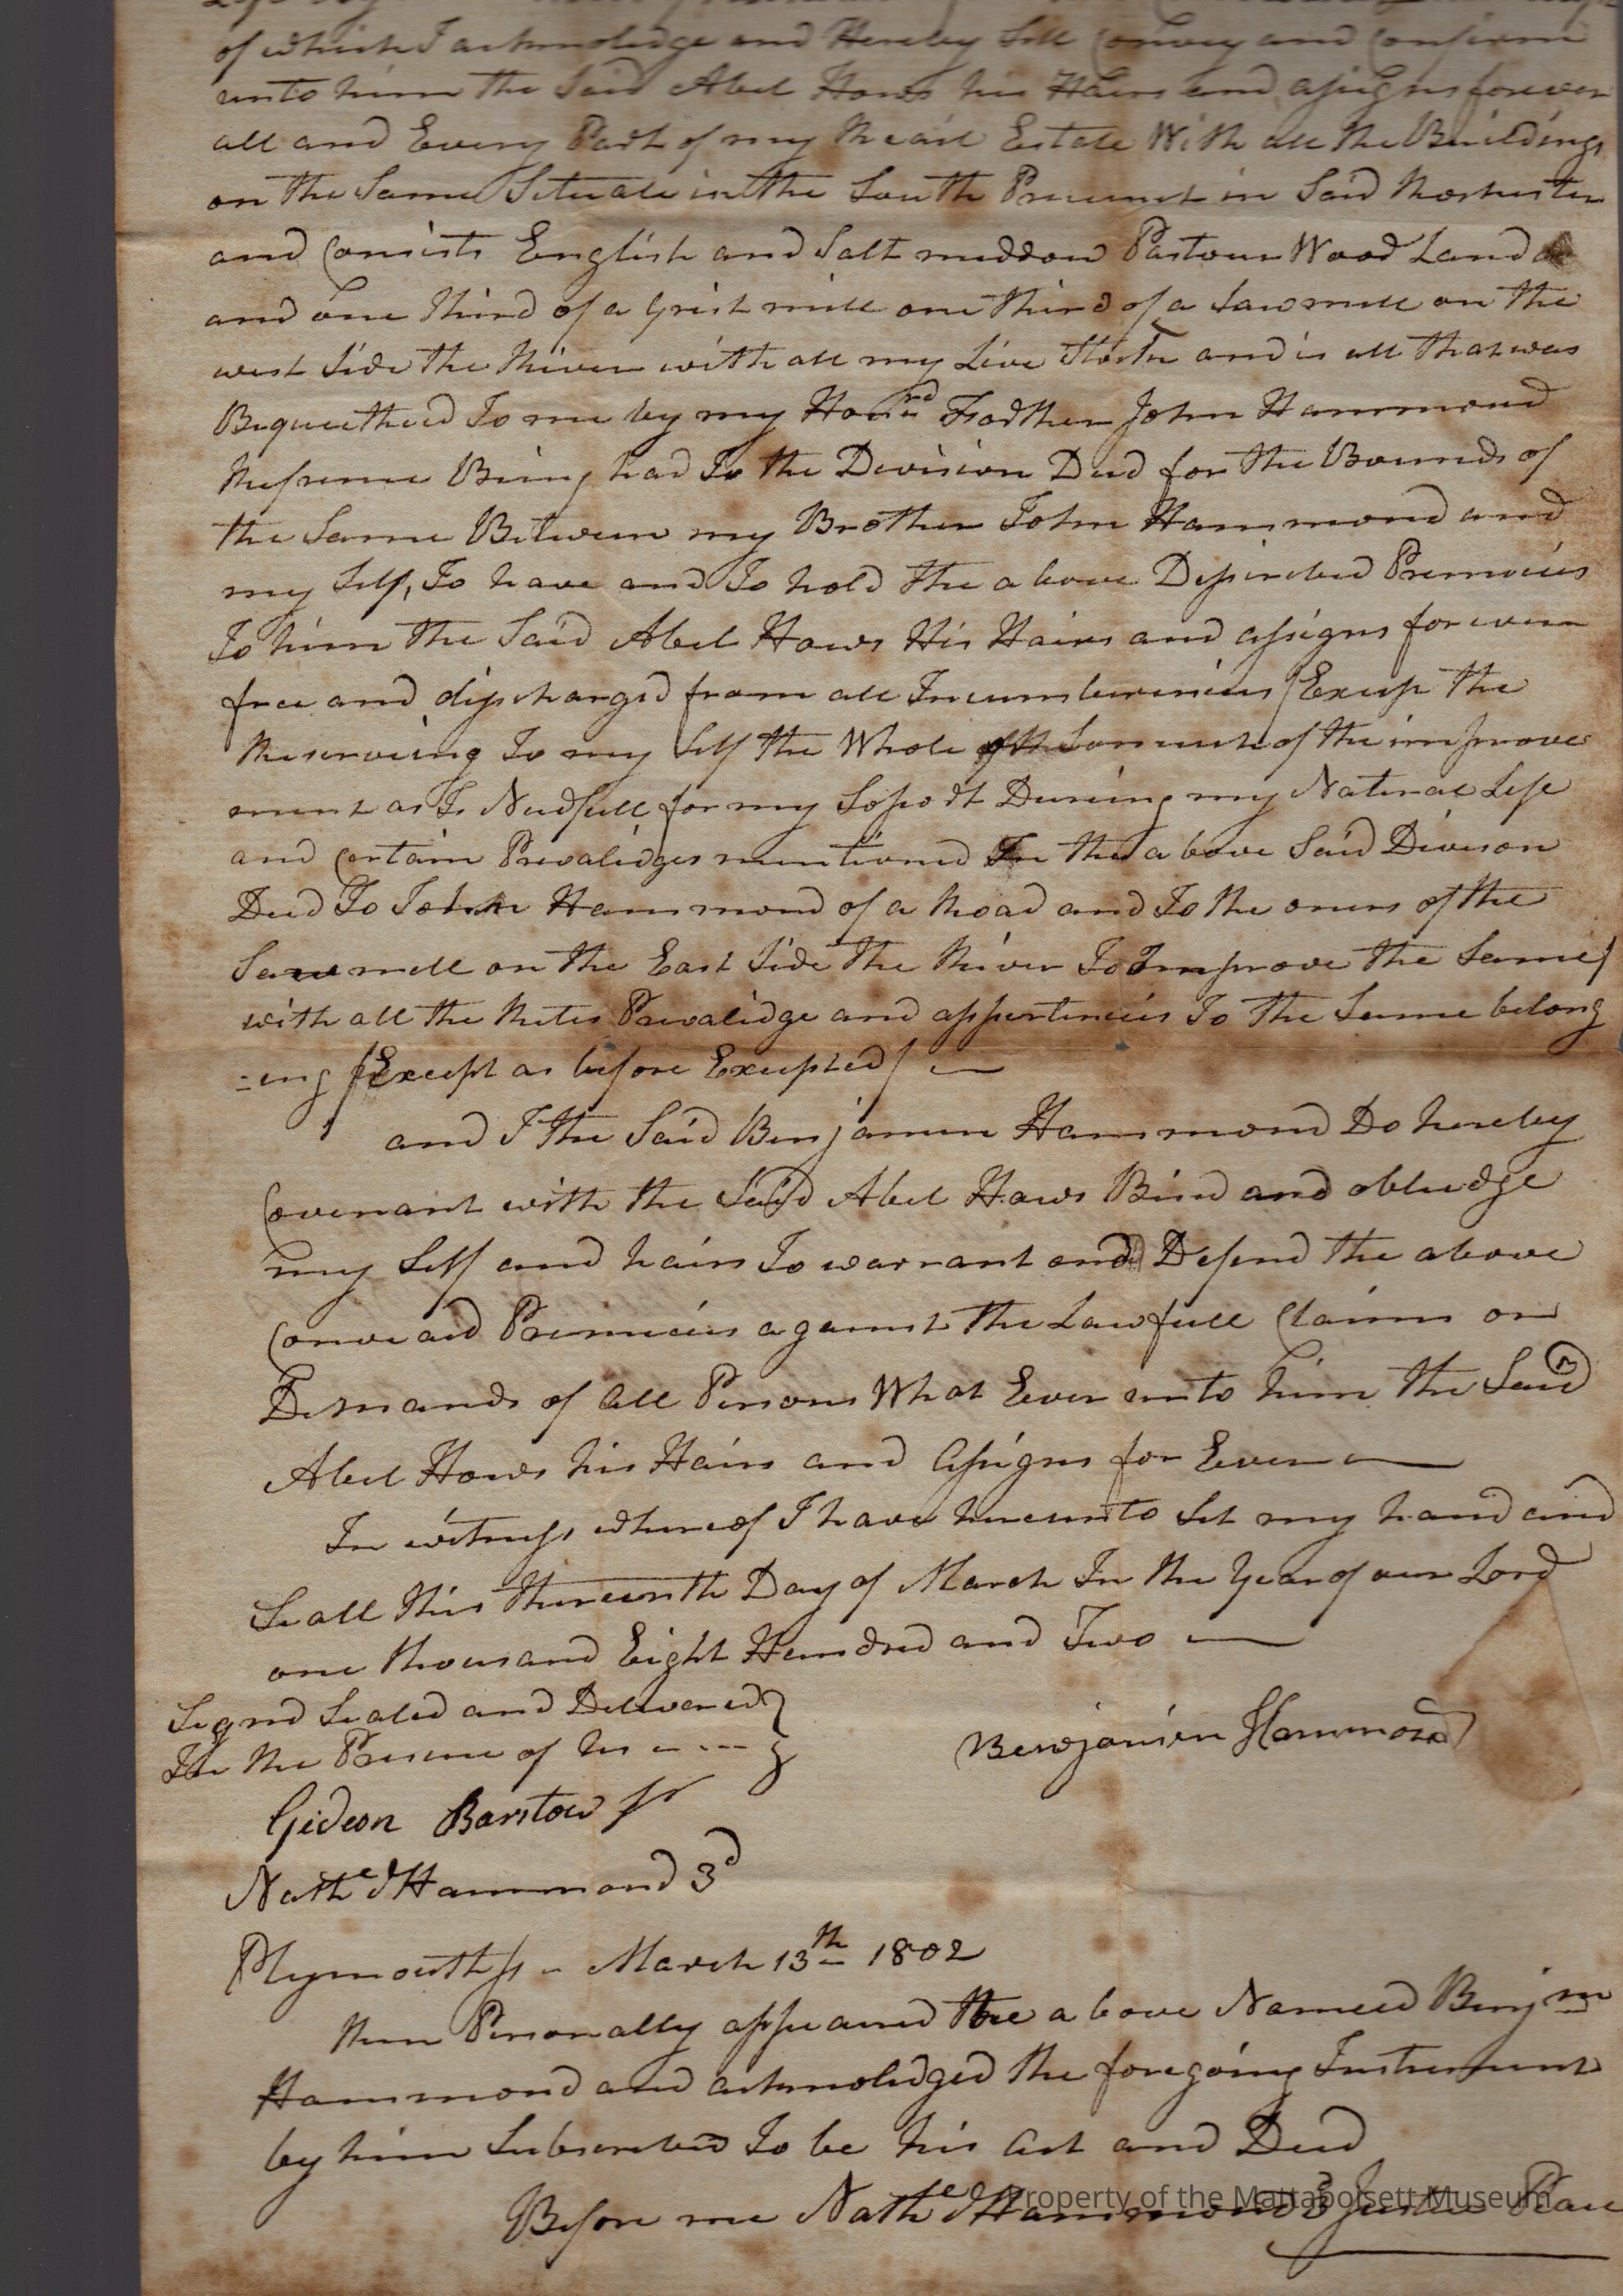 of which I acknowledge and Hereby Sell Convey and Confirm
unto him the Said Abel Hows his Hairs and assigns forever
all and Every Part of my Reail Estate With all the Buildings
on the Same Situate in the South Precinct in Said Rochester
and Consists English and Salt meddow Pastour Wood Land
and one third of a Grist mill one third of a Sawmill on the
west Side the River with all my Live Stock and is all that was
Bequeethed To me by my Honrd Fadther John Hammond
Refrence Being had To the Devision Deed for the Bounds of
the Same Between my Brother John Hammond and
my Self, To have and To hold the above Discribed Premicies
To him the Said Abel Hows His Hairs and assigns forever
free and discharged from all Incumberincies (Excep the
Reserveing To my Self the Whole of the Son much of the improve
ment as Is Needfull for my Soport Dureing my Natural Life
and Certain Prevalidges mentioned In the above Said Divison
Deed To John Hammond of a Road and To the oners of the
Sawmill on the East Side the River To Improve the Same)
with all the Rites Prevalidge and appertincies To the Same belong
-ing (Except as before Excepted) —
and I the Said Benjamin Hammond Do hereby
Covenant with the Said Abel Hows Bind and obleedge
my Self and hairs To warrant and Defend the above
Conveaid Premicies against the Lawfull Claims or
Demands of all Persons What Ever unto him the Said
Abel Hows his Hairs and Assigns for Ever —
In witness whereof I have hereunto Set my hand and
Seall this thirteenth Day of March In the Year of our Lord
one thousand Eight Hundred and Two —
Signd Sealed and Delivered }
In the Presence of us - - - }
Benjamin Hammond
Gideon Barstow Jr
Nathel Hammond 3d
Plymouth ss - March 13th 1802
then Personally appeared the above Nameed Benjm
Hammond and acknoledged the foregoing Instrument
by him Subscribed To be his Act and Deed
Before me Nathel Hammond 3 Justice Peace
Property of the Mattapoisett Museum